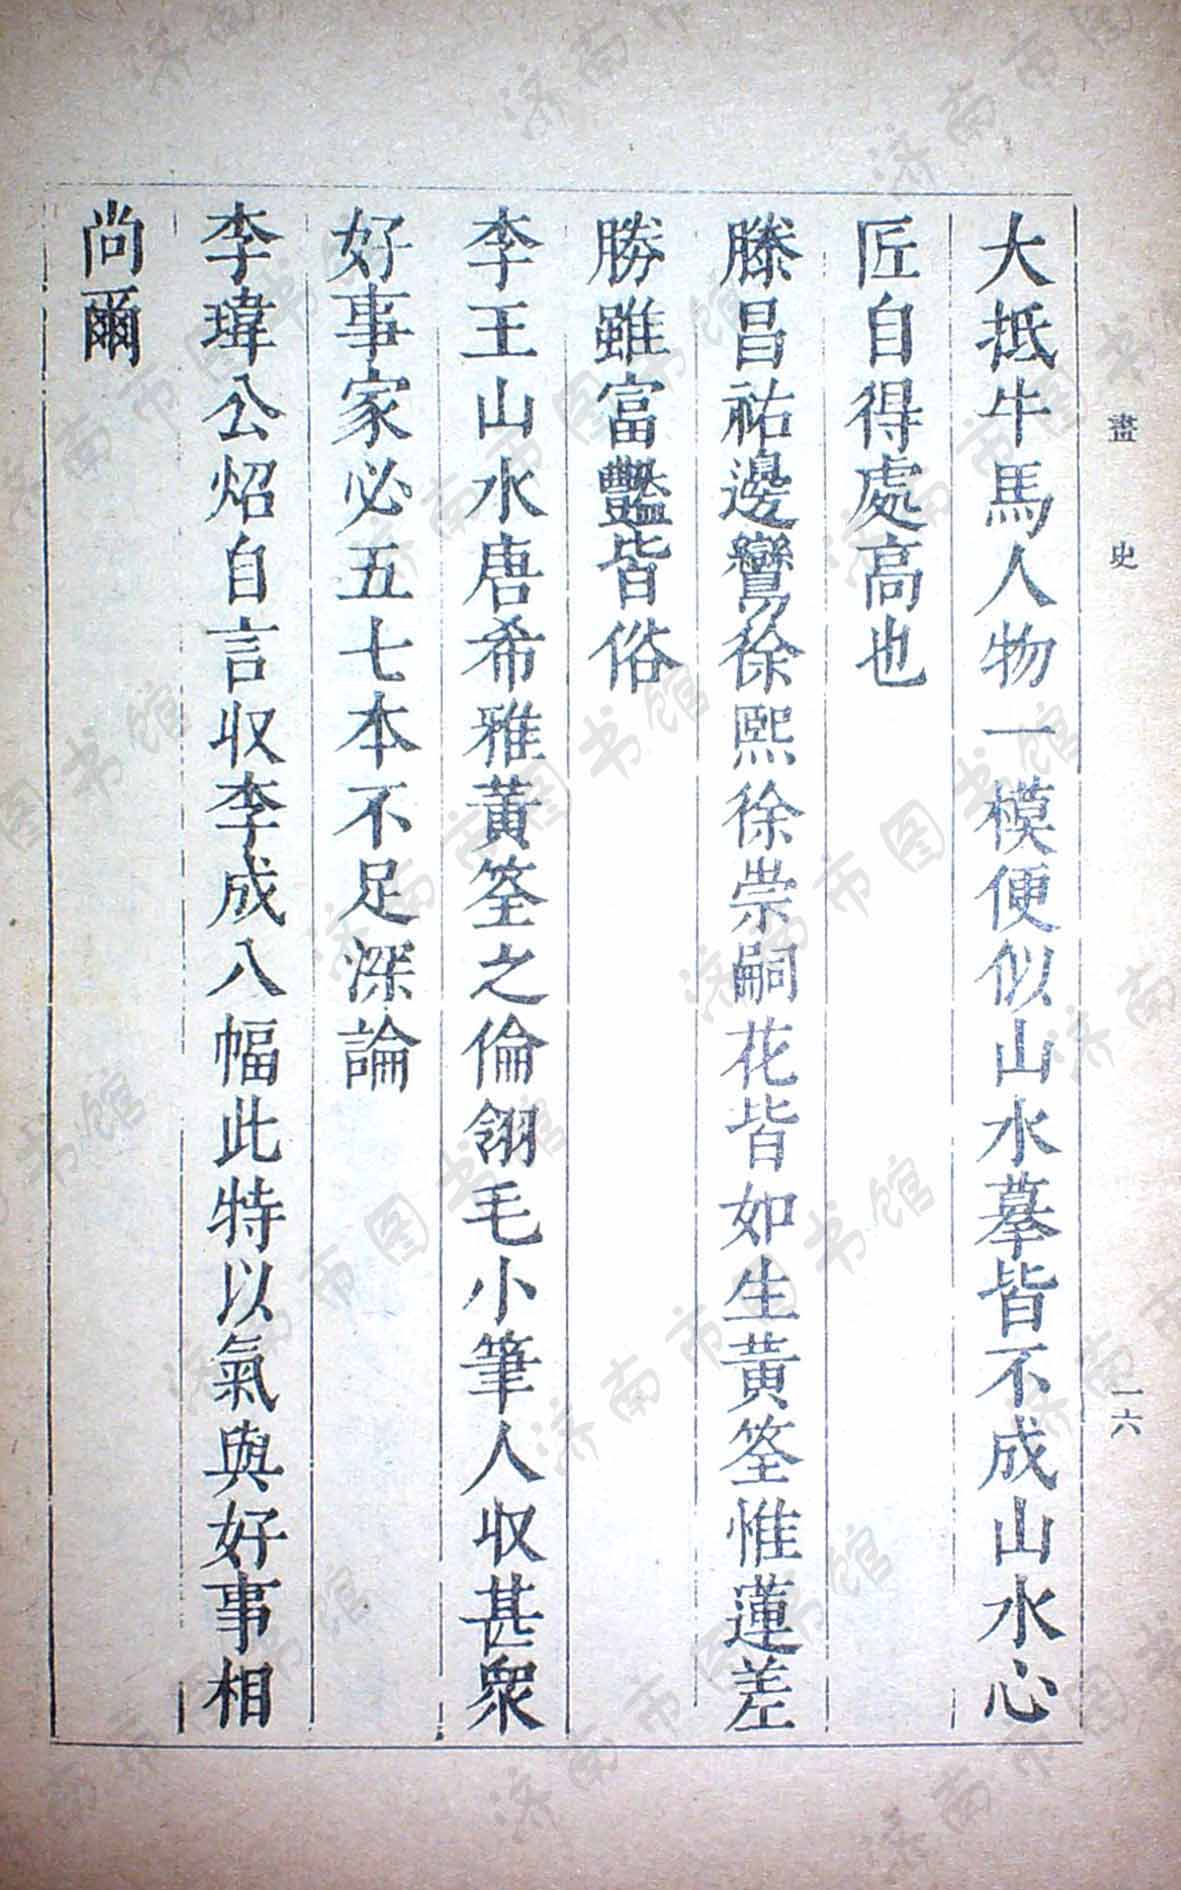 畫史
一六
大抵牛馬人物一模便似山水摹皆不成山水心
匠自得處高也
滕昌祐邊鸞徐熙徐崇嗣花皆如生黃筌惟蓮差
勝雖富豔皆俗
李王山水唐希雅黃筌之倫翎毛小筆人収甚衆
好事家必五七本不足深論
李瑋公炤自言収李成八幅此特以氣與好事相
尚爾
济南市图书馆